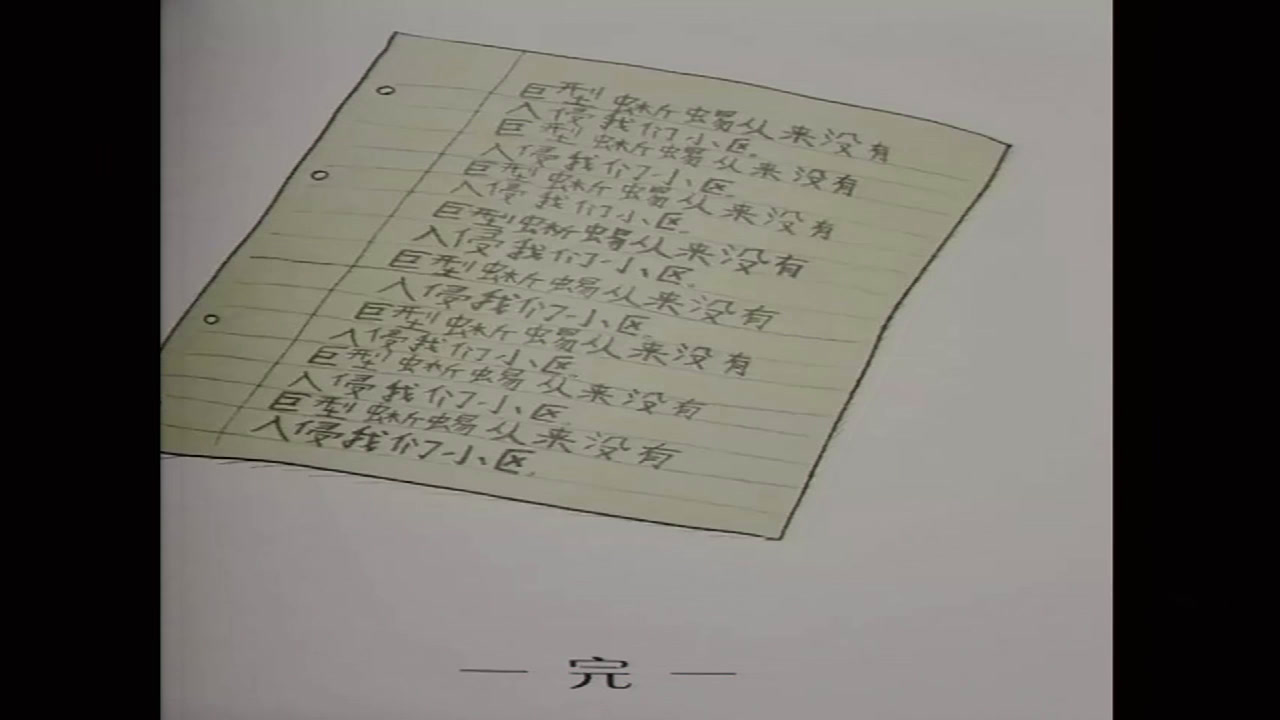 巨型蜥蜴从来没有
入侵我们小区.
巨型蜥蜴从来没有
入侵我们小区.
巨型蜥蜴从来没有
入侵我们小区.
巨型蜥蜴从来没有
入侵我们小区.
巨型蜥蜴从来没有
入侵我们小区.
巨型蜥蜴从来没有
入侵我们小区.
巨型蜥蜴从来没有
入侵我们小区.
巨型蜥蜴从来没有
入侵我们小区.
— 完 —